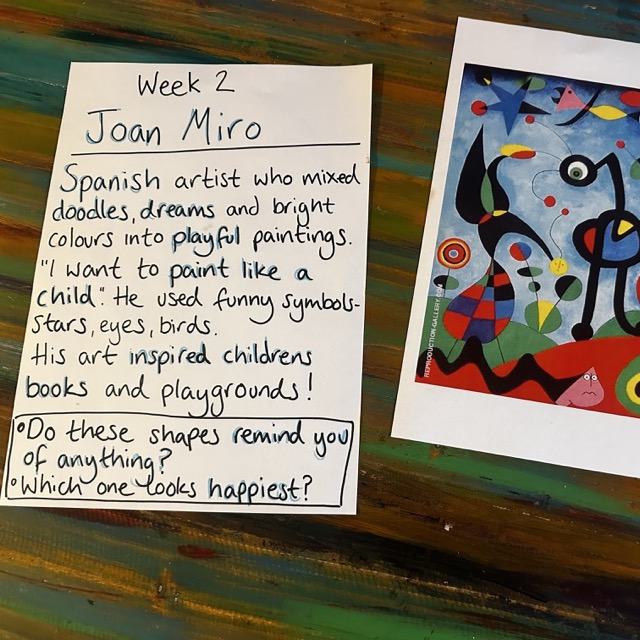 Week 2
Joan Miro
Spanish artist who mixed
doodles, dreams and bright
colours into playful paintings.
"I want to paint like a
child". He used funny symbols-
stars, eyes, birds.
His art inspired childrens
books and playgrounds!
•Do these shapes remind you
of anything?
•Which one looks happiest?
REPRODUCTION-GALLERY.COM